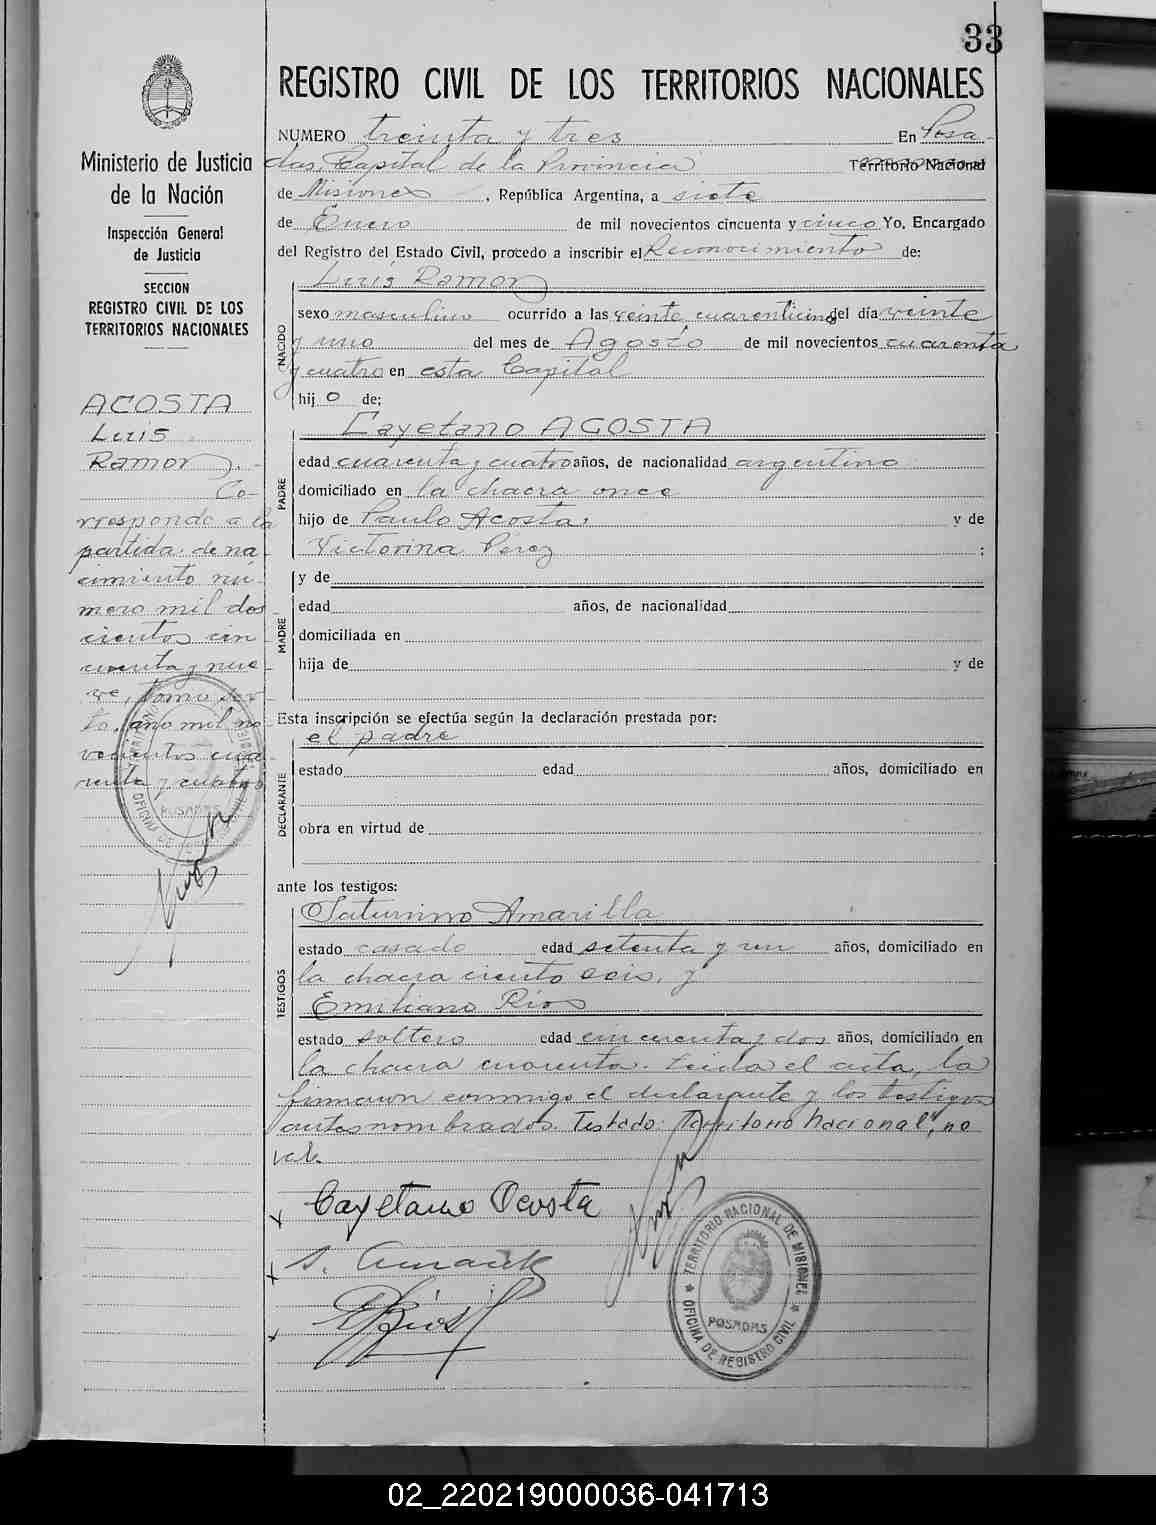 33
REGISTRO CIVIL DE LOS TERRITORIOS NACIONALES
NUMERO treinta y tres En Posa-
das, Capital de la Provincia Territorio Nacional
de Misiones, República Argentina, a siete
de Enero de mil novecientos cincuenta y cinco Yo, Encargado
del Registro del Estado Civil, procedo a inscribir el Reconocimiento de:
Luis Ramon
NACIDO
sexo masculino ocurrido a las veinte cuarenticinco del día veinte
y uno del mes de Agosto de mil novecientos cuarenta
y cuatro en esta Capital
hijo de;
Cayetano ACOSTA
PADRE
edad cuarenta y cuatro años, de nacionalidad argentino
domiciliado en la chacra once
hijo de Paulo Acosta, y de
Victorina Pérez ;
y de
MADRE
edad años, de nacionalidad
domiciliada en
hija de y de
Esta inscripción se efectúa según la declaración prestada por:
el padre
DECLARANTE
estado edad años, domiciliado en
obra en virtud de
ante los testigos:
Saturnino Amarilla
TESTIGOS
estado casado edad setenta y un años, domiciliado en
la chacra ciento seis, y
Emiliano Rios
estado soltero edad cincuenta y dos años, domiciliado en
la chacra cuarenta. Leida el acta, la
firmaron conmigo el declarante y los testigos
antes nombrados. Testado: "Territorio Nacional", no
vale.
Cayetano Acosta
S. Amarilla
E Rios
TERRITORIO NACIONAL DE MISIONES
POSADAS
OFICINA DE REGISTRO CIVIL
Ministerio de Justicia
de la Nación
Inspección General
de Justicia
SECCION
REGISTRO CIVIL DE LOS
TERRITORIOS NACIONALES
ACOSTA
Luis
Ramon.
Co-
rresponde a la
partida de na-
cimiento nú-
mero mil dos
cientos cin
cuenta y nue
ve, tomo sex-
to, año mil no
vecientos cua-
renta y cuatro
POSADAS
OFICINA DE
02_220219000036-041713